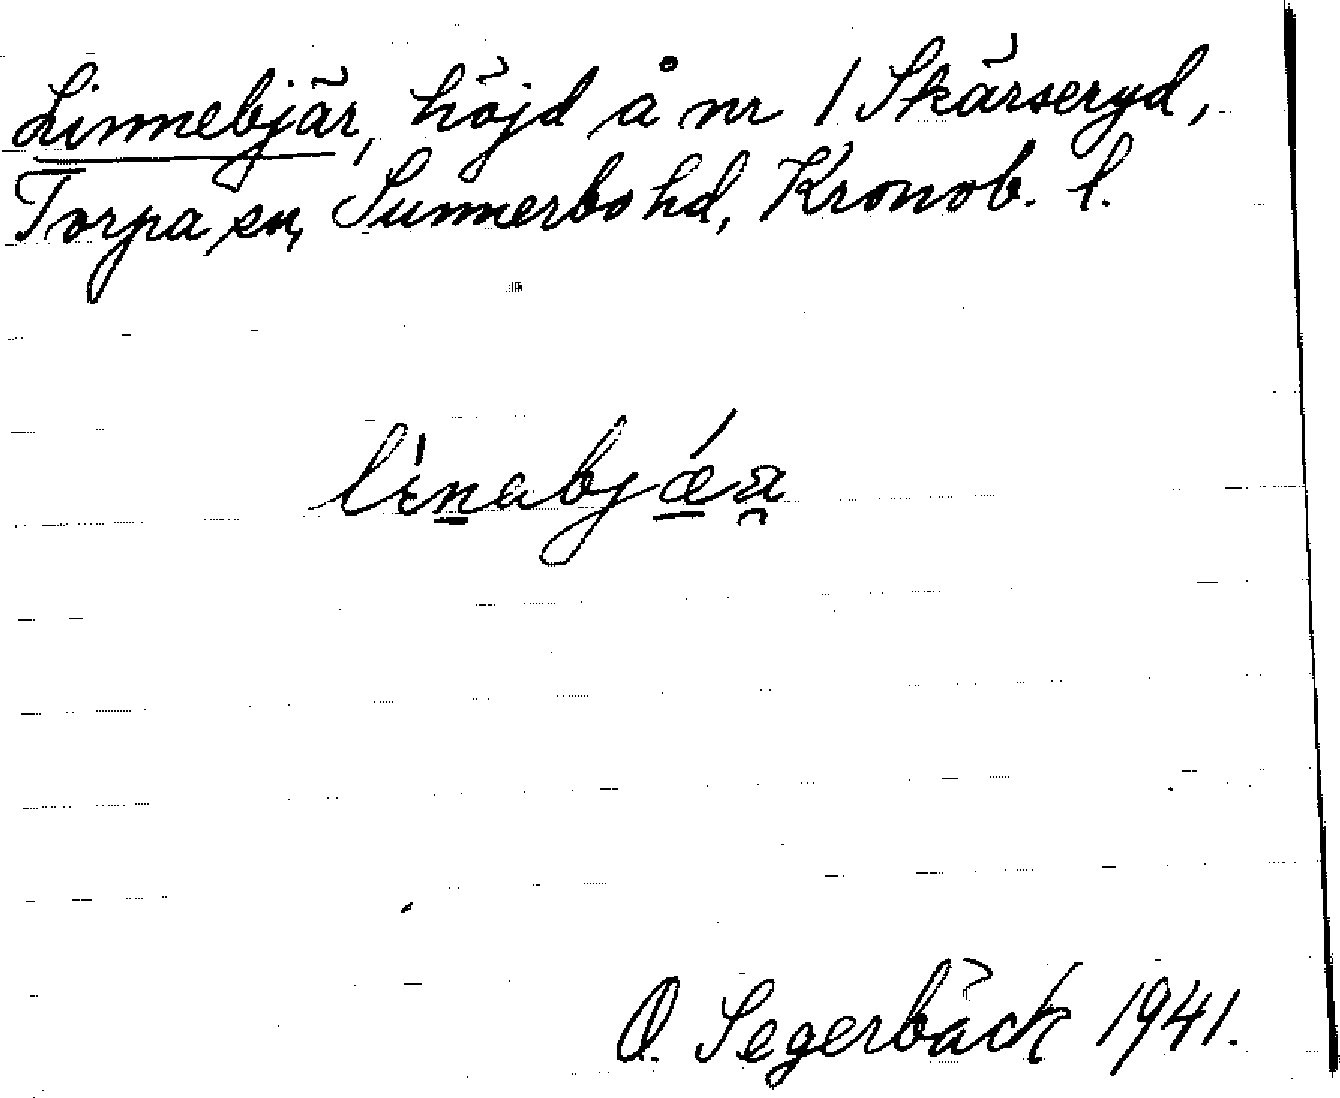 Linnebjär, höjd å nr 1 Skärseryd,
Torpa sn, Sunnerbo hd, Kronob. l.
O. Segerbäck 1941.